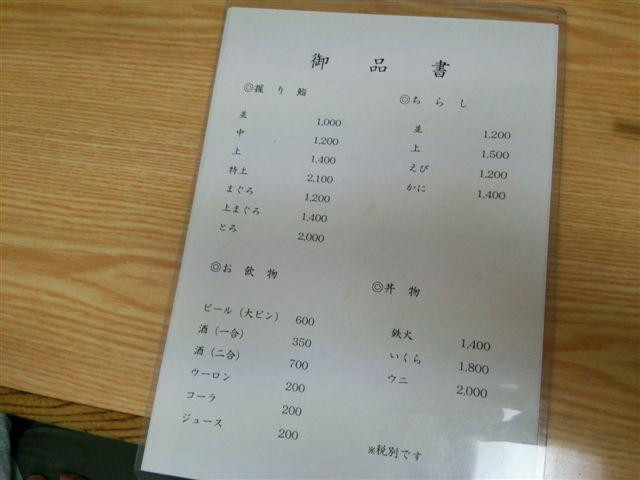 御品書
◎握り鮨
並 1,000
中 1,200
上 1,400
特上 2,100
まぐろ 1,200
上まぐろ 1,400
とろ 2,000
◎ちらし
並 1,200
上 1,500
えび 1,200
かに 1,400
◎お飲物
ビール（大ビン） 600
酒（一合） 350
酒（二合） 700
ウーロン 200
コーラ 200
ジュース 200
◎丼物
鉄火 1,400
いくら 1,800
ウニ 2,000
※税別です